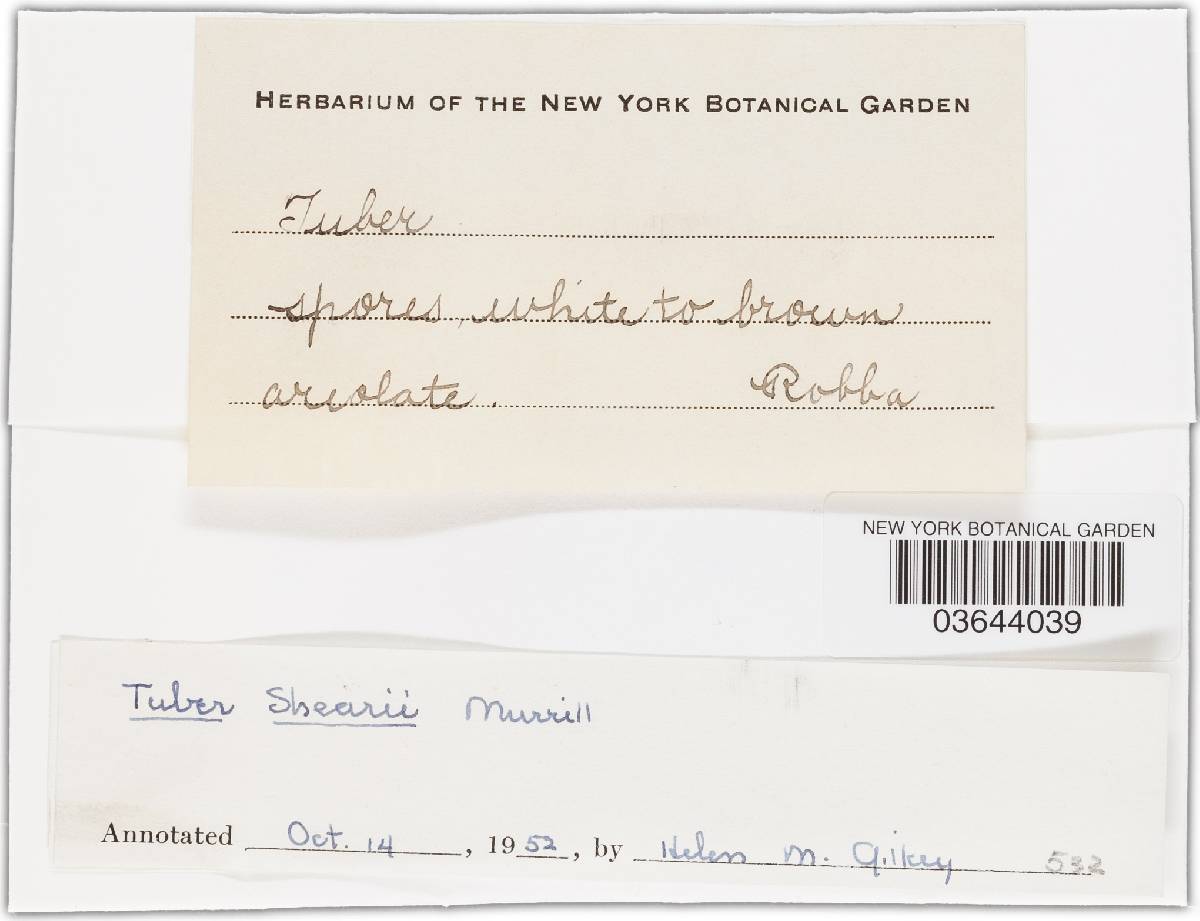 HERBARIUM OF THE NEW YORK BOTANICAL GARDEN
Tuber
spores, white to brown
areolate. Robba
NEW YORK BOTANICAL GARDEN
03644039
Tuber Shearii Murrill
Annotated Oct. 14, 1952, by Helen M. Gilkey 532